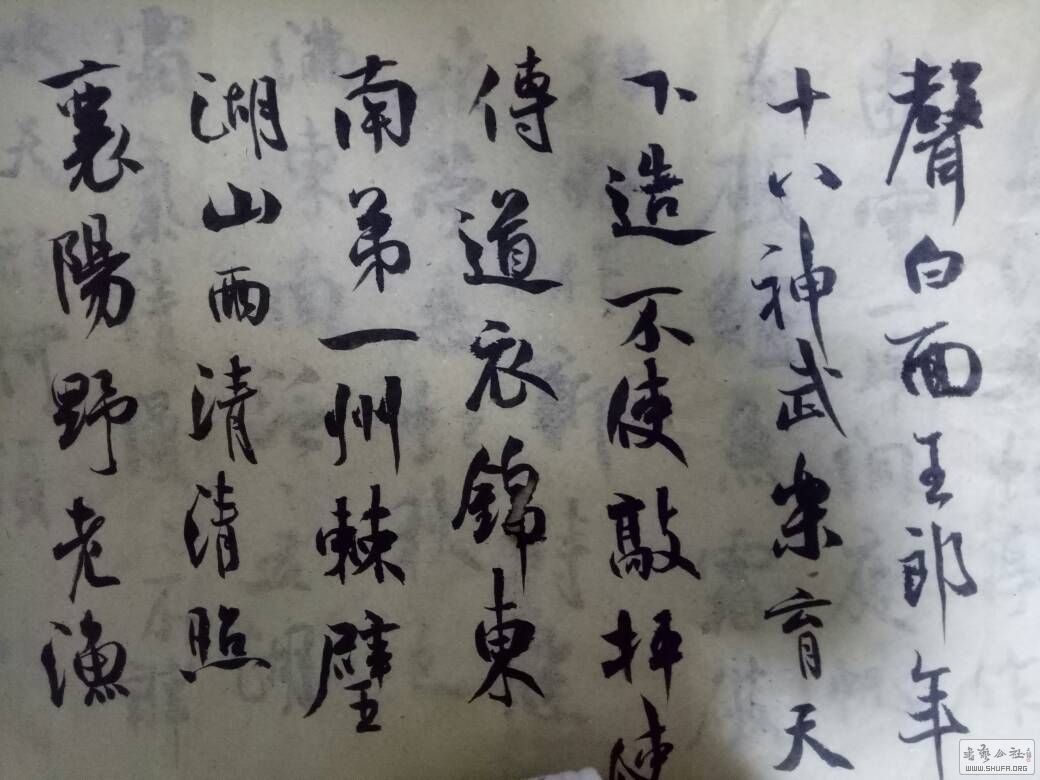 聲白面王郎年
十八神武樂育天
下造不使敲枰使
傳道衣錦東
南弟一州棘璧
湖山兩清清照
襄陽野老漁
书艺公社
WWW.SHUFA.ORG